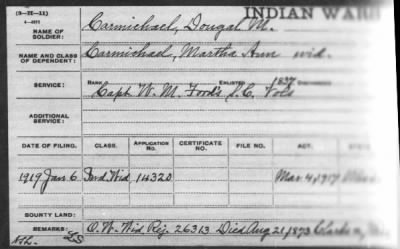 (3-2E-11)
INDIAN WARS
NAME OF SOLDIER: Carmichael, Dougal M.
NAME AND CLASS OF DEPENDENT: Carmichael, Martha Ann wid.
SERVICE: RANK ENLISTED 1837 DISCHARGED
Capt W. M. Ford's S.C. Vols
ADDITIONAL SERVICE:
DATE OF FILING. CLASS. APPLICATION No. CERTIFICATE No. FILE No. ACT.
1919 Jan 6 Ind Wid 14320 Mar 4, 1917
BOUNTY LAND:
REMARKS: O. W. Wid Rej. 26313 Died Aug 21, 1893